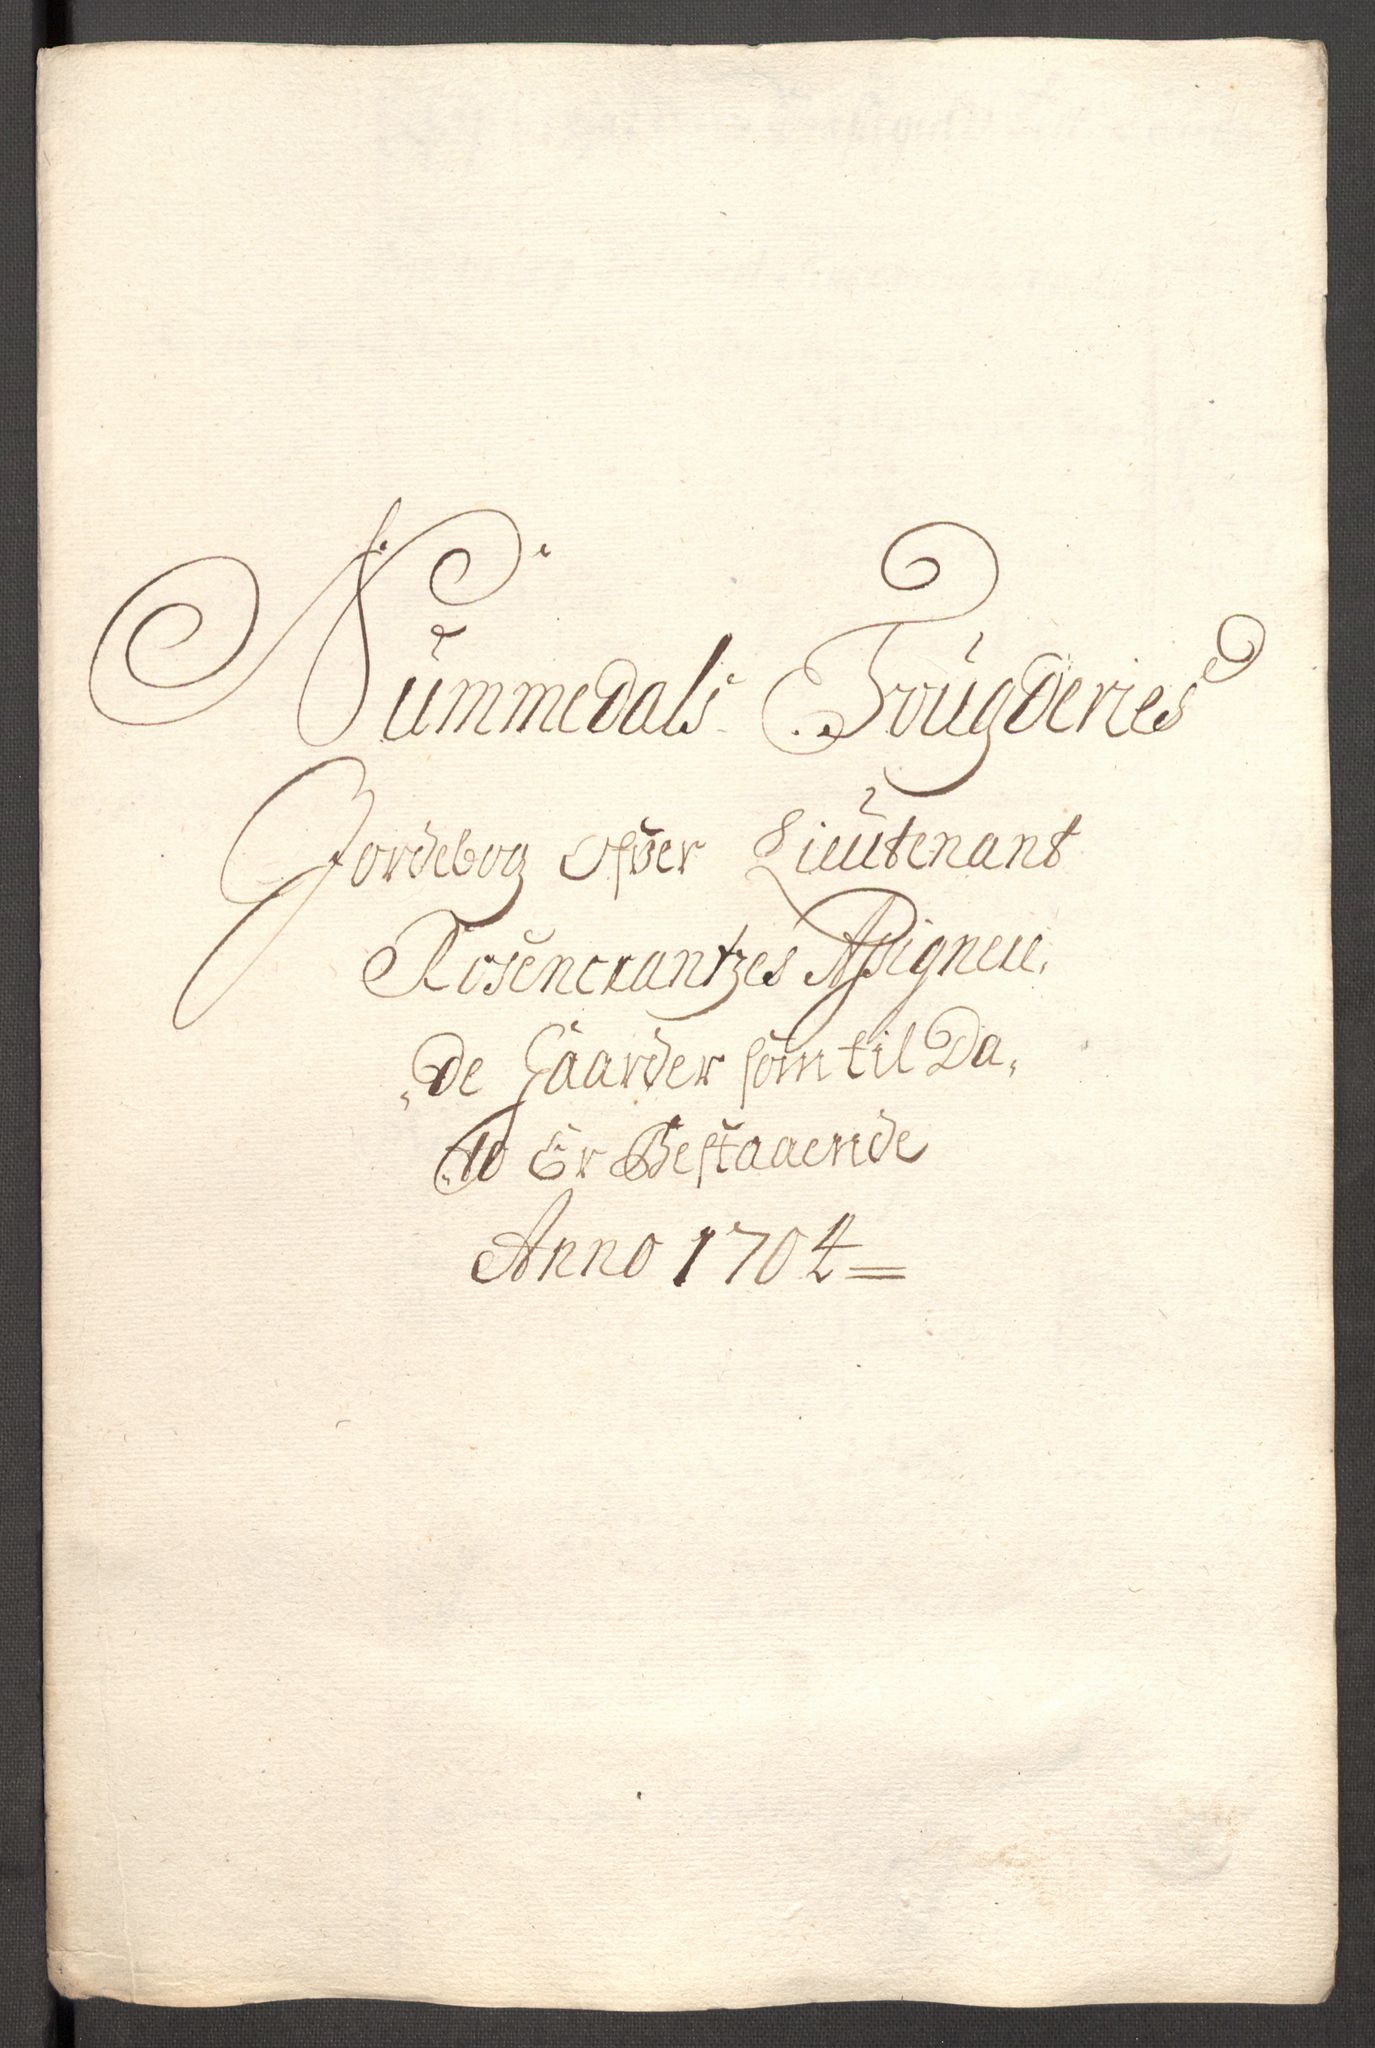 Nummedals Fougderies
Jordebog ofver Lieutenant
Rosencrantzes Assignere,
„de Gaarder som til Da„
„to Er Bestaaende
Anno 1704=